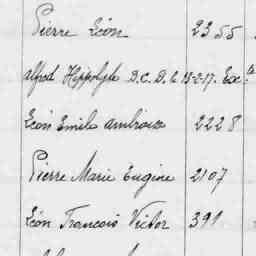 Pierre Léon 2355
Alfred Hippolyte D.C.D. le 13-2-17. Exc.
Léon Emile Ambroise 2228
Pierre Marie Eugène 2107
Léon François Victor 391